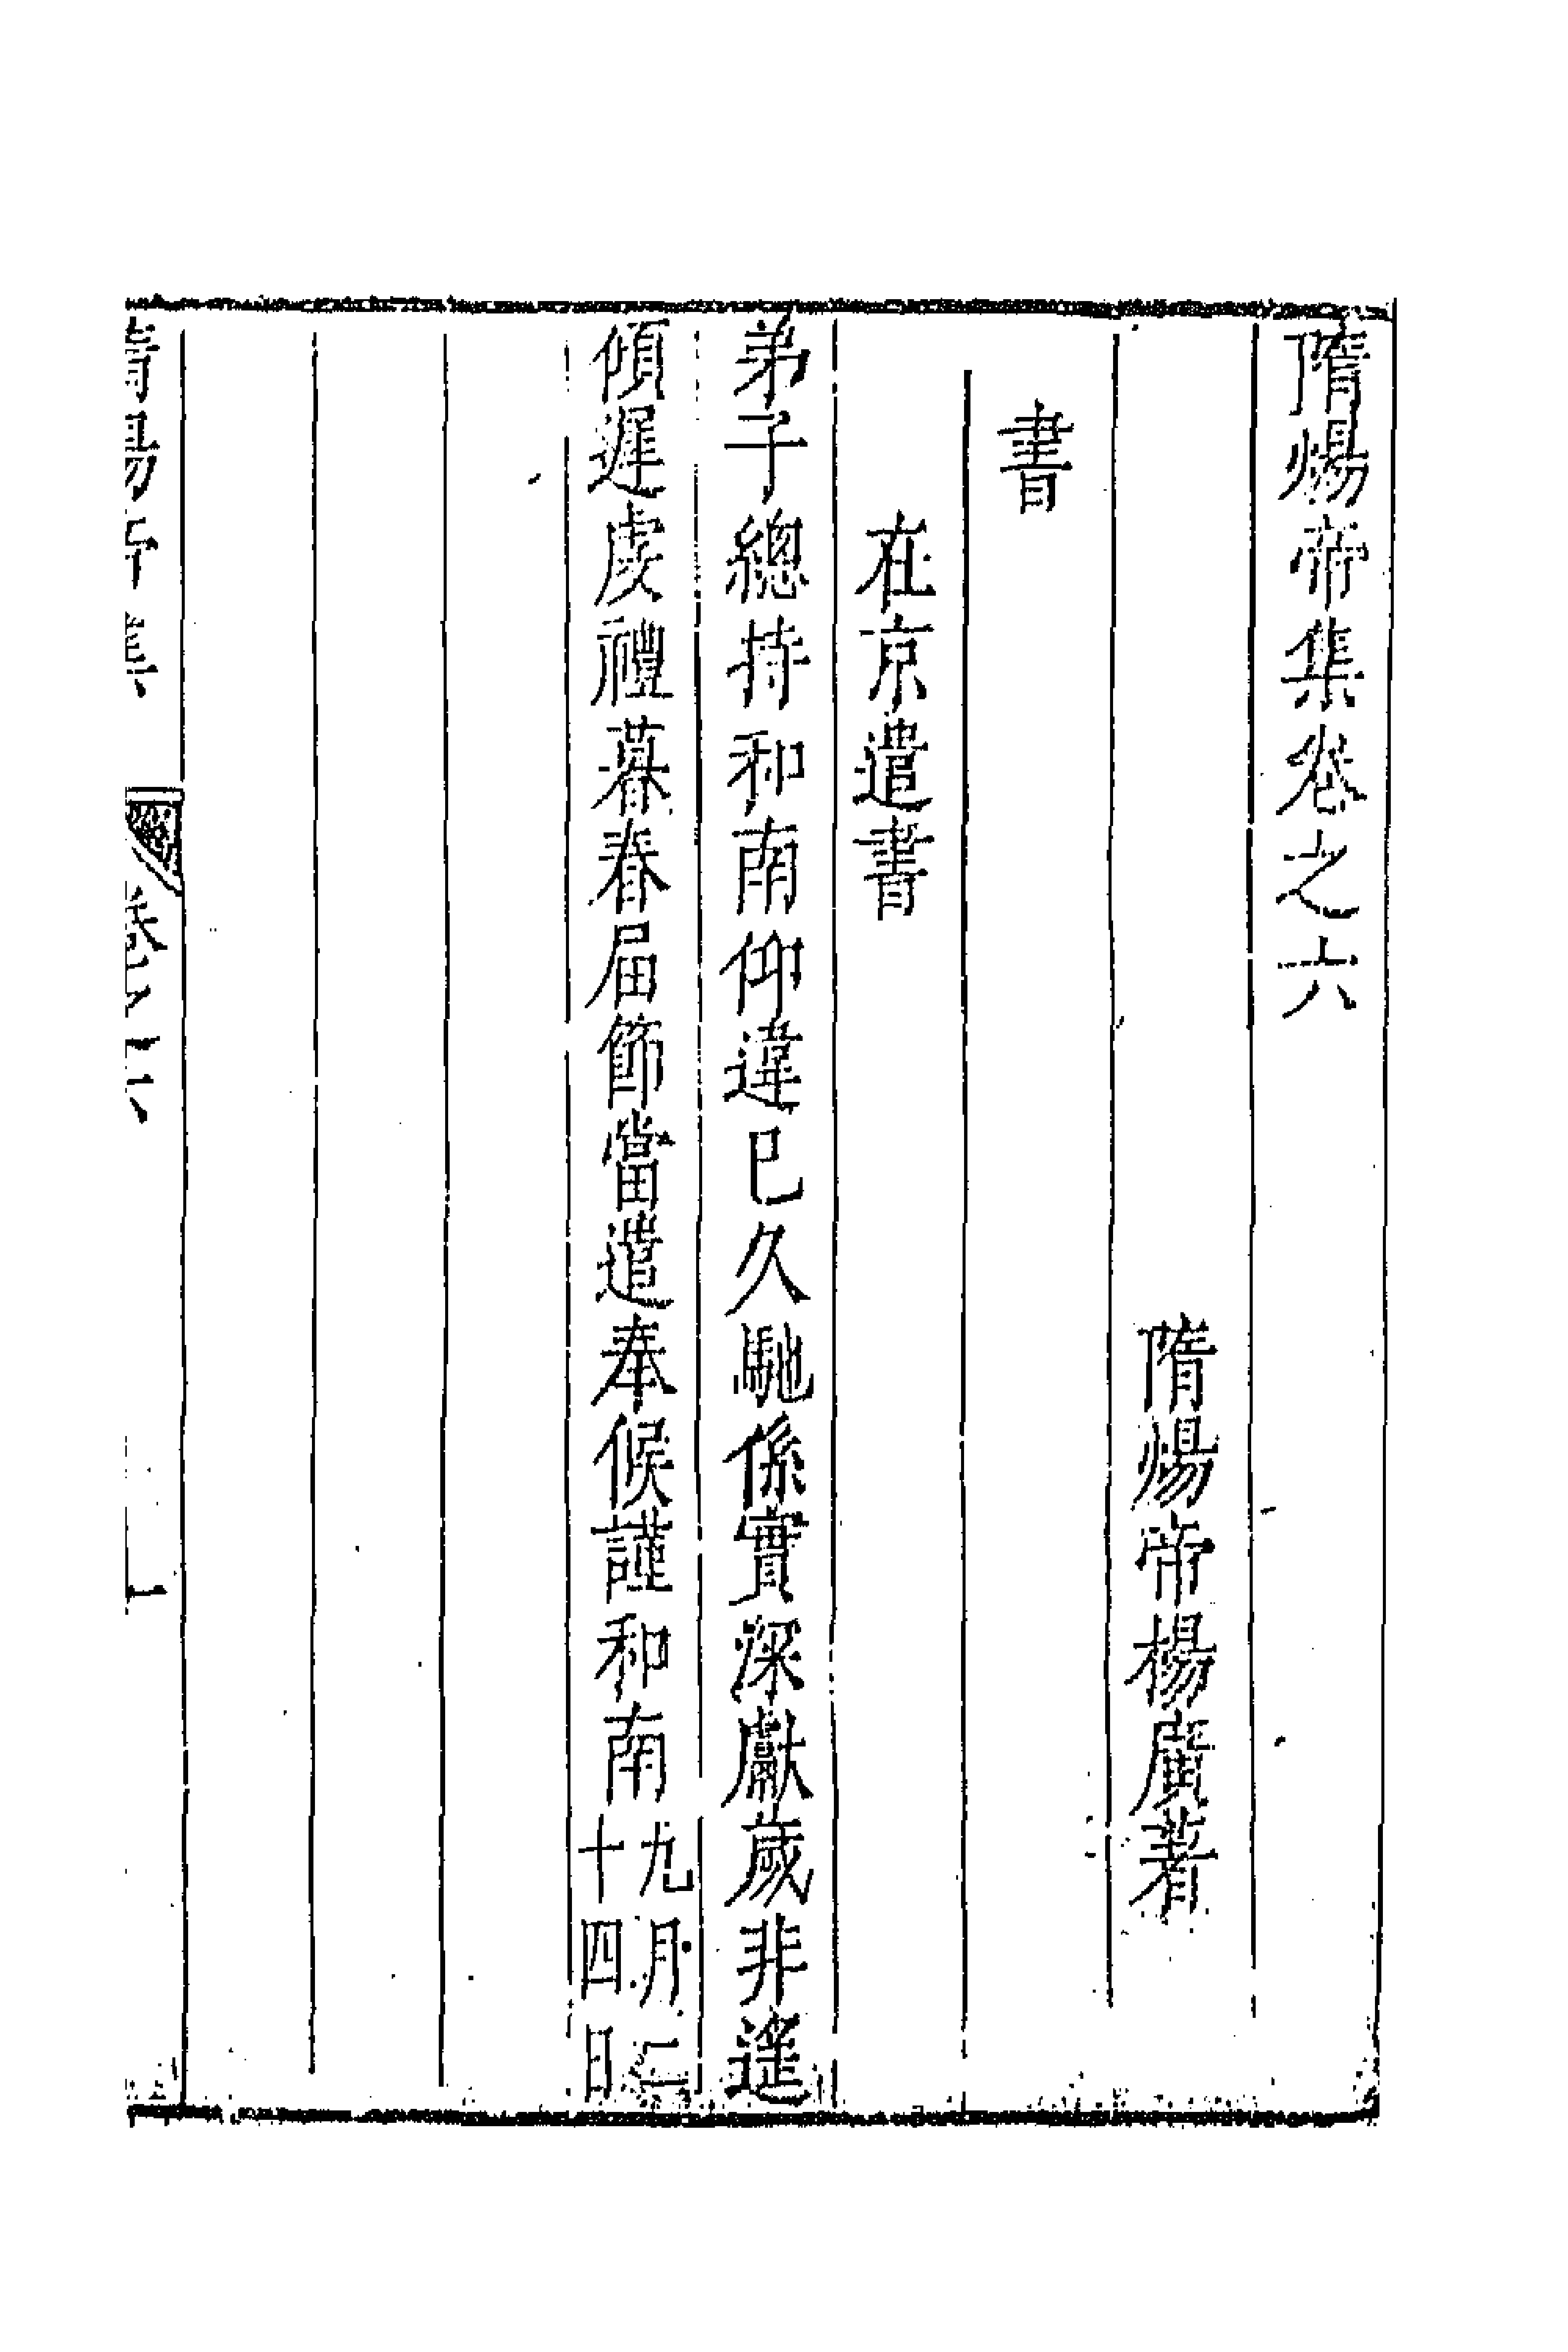 隋煬帝集卷之六
隋煬帝楊廣著
書
在京遣書
弟子總持和南仰違已久馳係實深獻歲非遙
傾遲虔禮暮春届節當遣奉候謹和南九月二十四日
隋煬帝集 卷六 一